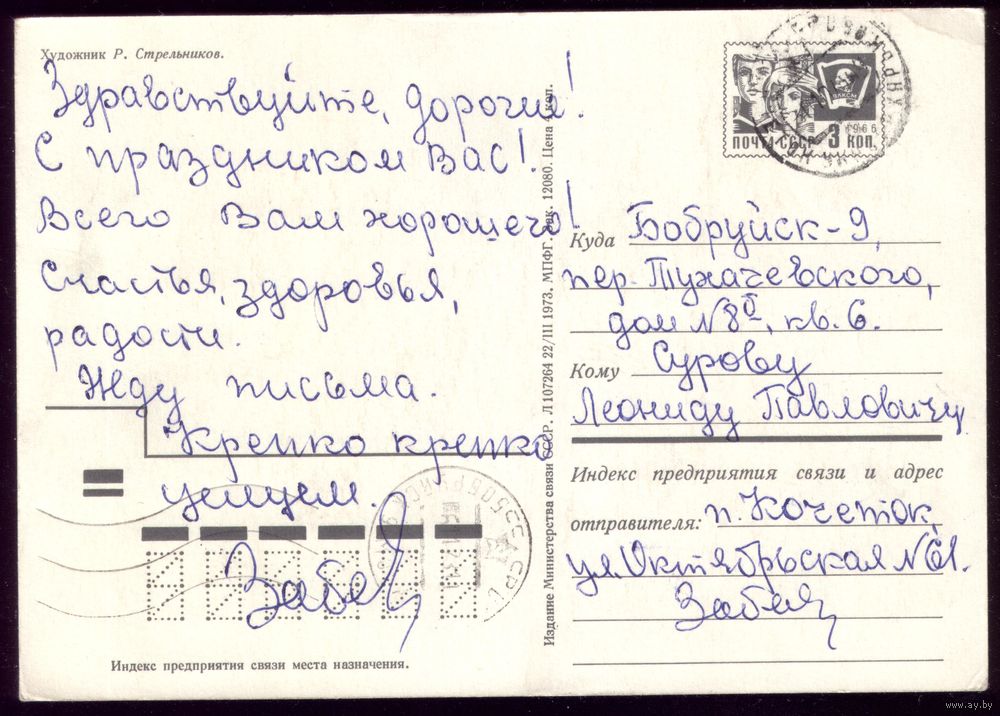 Художник Р. Стрельников.
Здравствуйте, дорогие!
С праздником Вас!
Всего Вам хорошего!
Счастья, здоровья,
радости.
Жду письма.
Крепко крепко
целуем.
Индекс предприятия связи места назначения.
Издание Министерства связи СССР. Л 107264 22/III 1973. МПФГ. Зак. 12080. Цена 4 коп.
ВЛКСМ
1966
ПОЧТА СССР 3 КОП.
Куда Бобруйск-9,
пер. Тухачевского,
дом N 8, кв. 6.
Кому Сурову
Леониду Павловичу
Индекс предприятия связи и адрес
отправителя: п. Кочеток,
ул. Октябрьская N 61.
www.ay.by